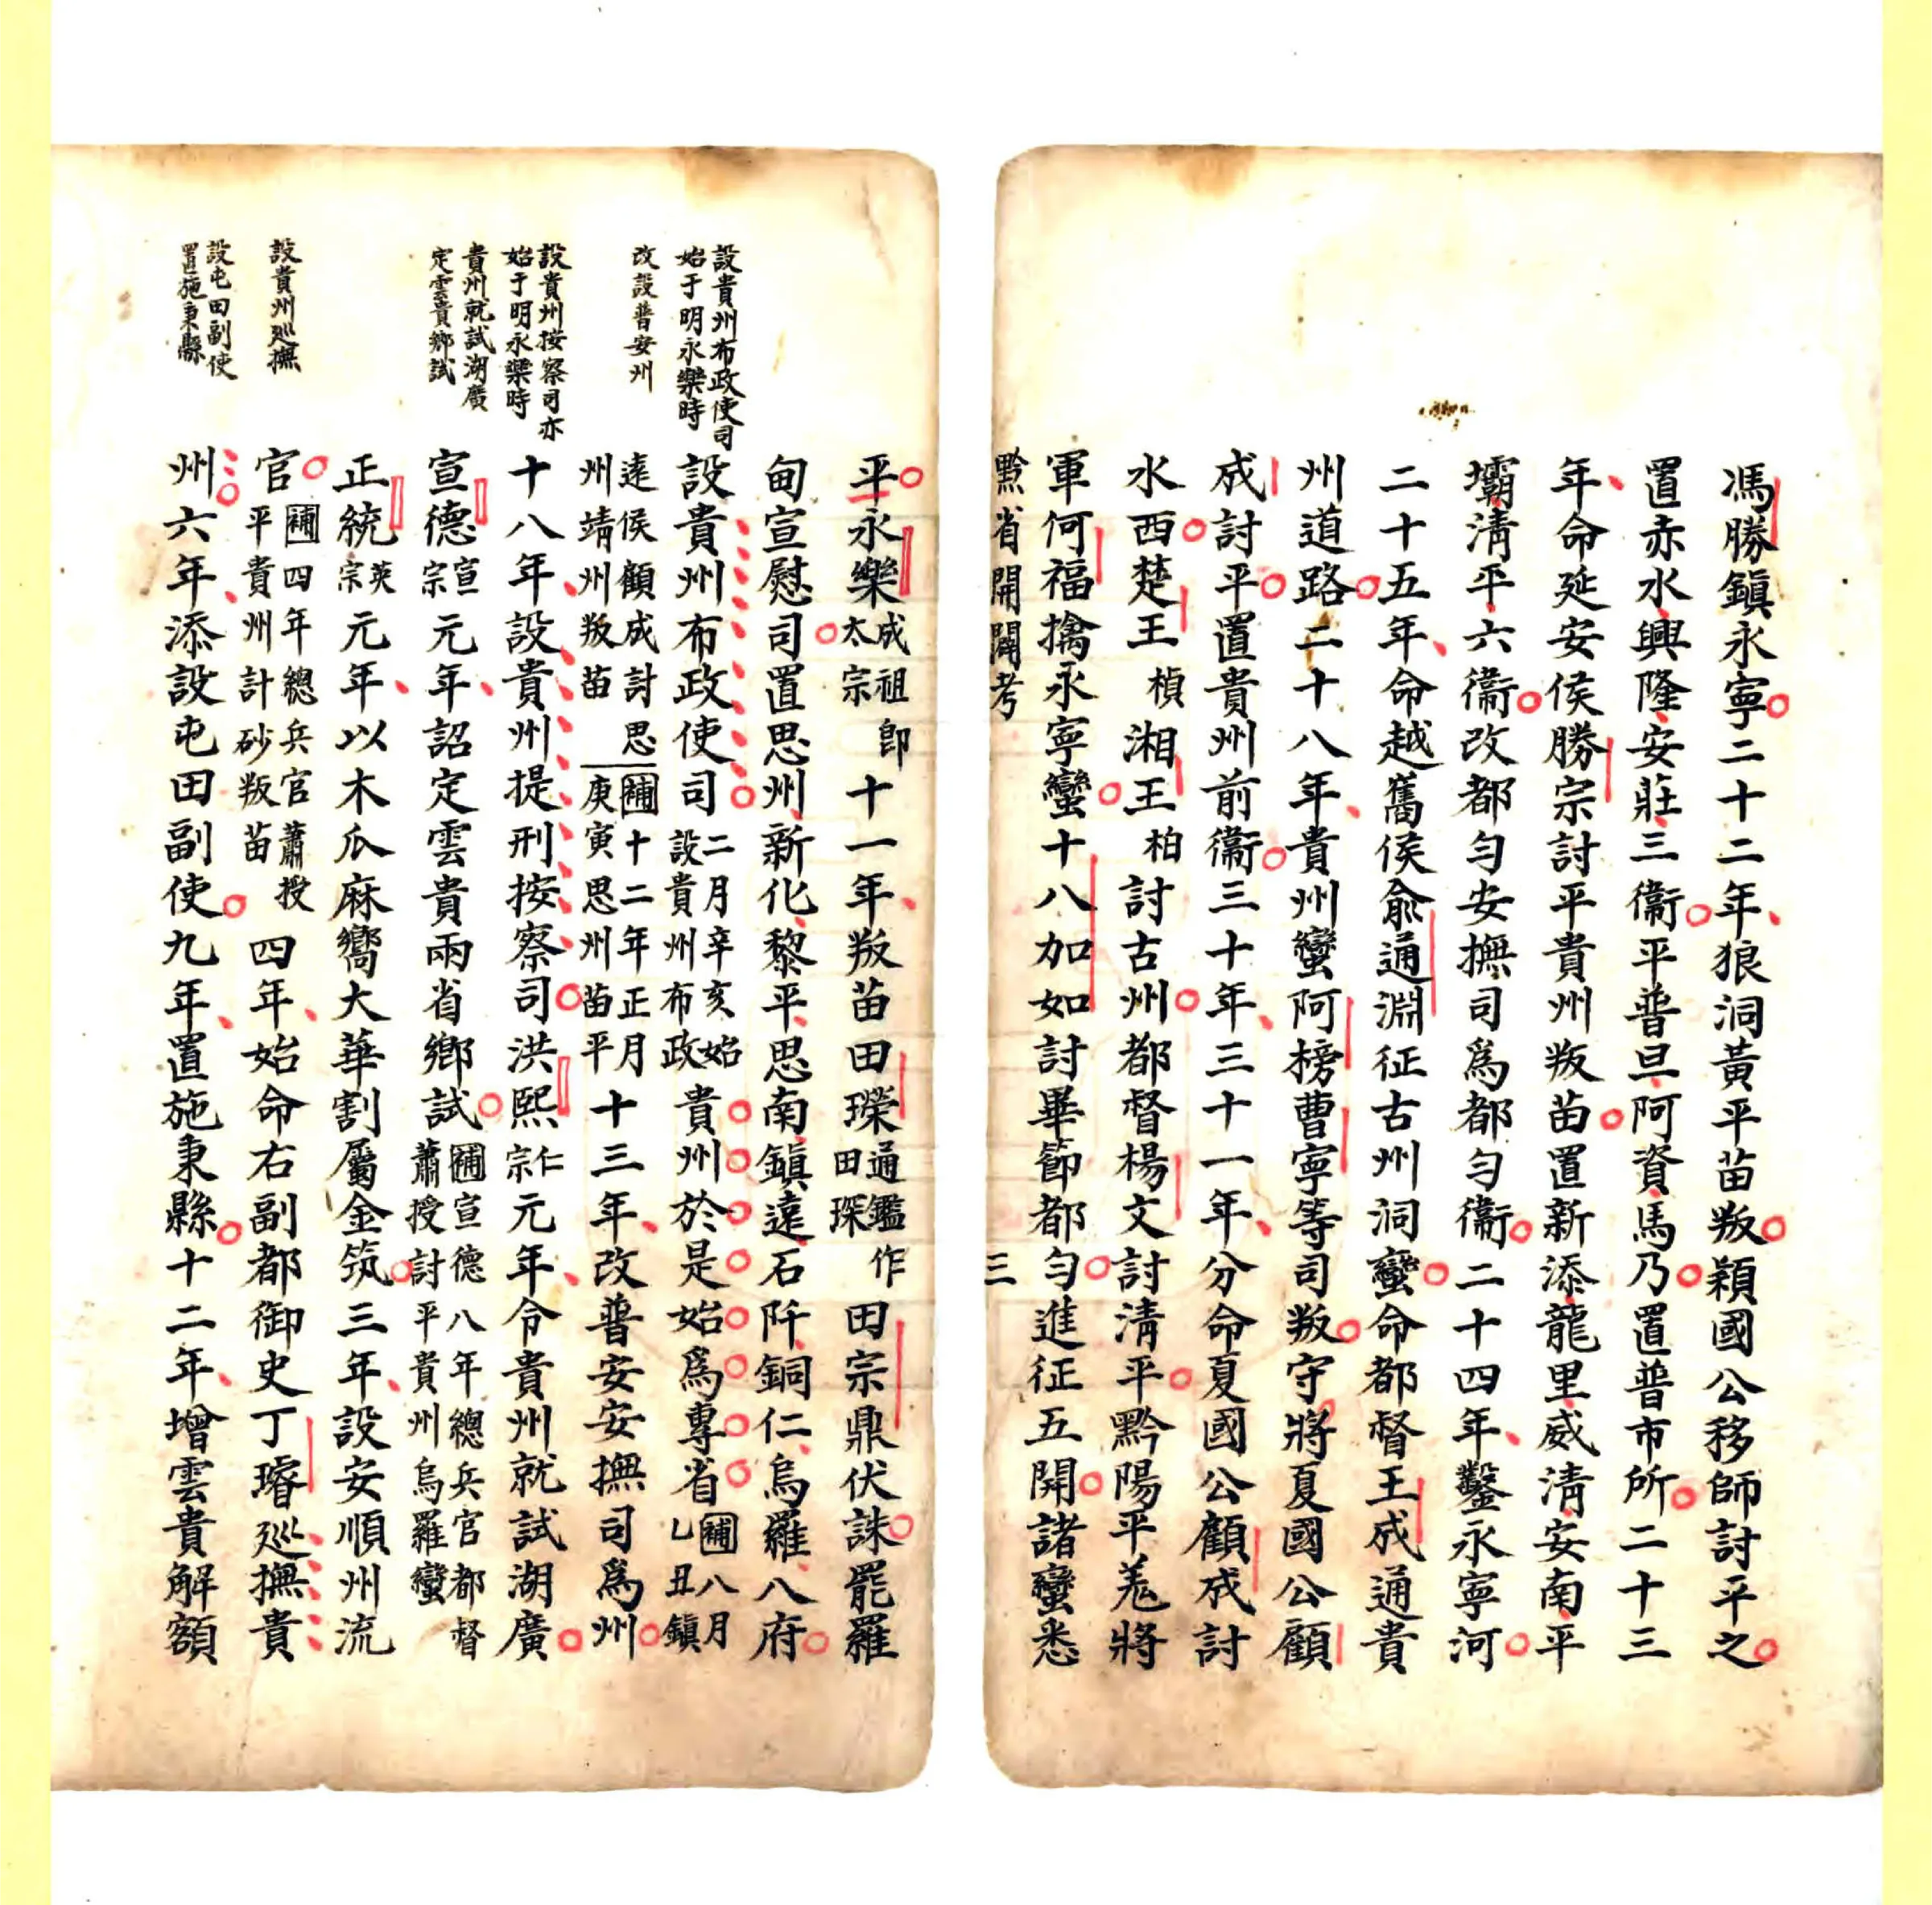 馮勝鎮永寧二十二年狼洞黃平苗叛頴國公移師討平之
置赤水興隆安莊三衞平普旦阿資馬乃置普市所二十三
年命延安侯勝宗討平貴州叛苗置新添龍里威淸安南平
壩淸平六衞改都勻安撫司爲都勻衞二十四年鑿永寧河
二十五年命越舊侯俞通淵征古州洞蠻命都督王成通貴
州道路二十八年貴州蠻阿榜曹寧等司叛守將夏國公顧
成討平置貴州前衞三十年三十一年分命夏國公顧成討
水西楚王楨湘王柏討古州都督楊文討淸平黔陽平羗將
軍何福擒永寧蠻十八加如討畢節都勻進征五開諸蠻悉
黔省開闢考 三
平永樂成祖卽太宗十一年叛苗田瓓通鑑作田琛田宗鼎伏誅罷羅
甸宣慰司置思州新化黎平思南鎮遠石阡銅仁烏羅八府
設貴州布政使司二月辛亥始設貴州布政貴州於是始爲專省補八月乙丑鎮
遠侯顧成討思州靖州叛苗補十二年正月庚寅思州苗平十三年改普安安撫司爲州
十八年設貴州提刑按察司洪熙仁宗元年令貴州就試湖廣
宣德宣宗元年詔定雲貴兩省鄉試補宣德八年總兵官都督蕭授討平貴州烏羅蠻
正統英宗元年以木瓜麻嚮大華割屬金筑三年設安順州流
官補四年總兵官蕭授平貴州計砂叛苗四年始命右副都御史丁璿廵撫貴
州六年添設屯田副使九年置施秉縣十二年增雲貴解額
設貴州布政使司
始于明永樂時
改設普安州
設貴州按察司亦
始于明永樂時
貴州就試湖廣
定雲貴鄉試
設貴州廵撫
設屯田副使
置施秉縣